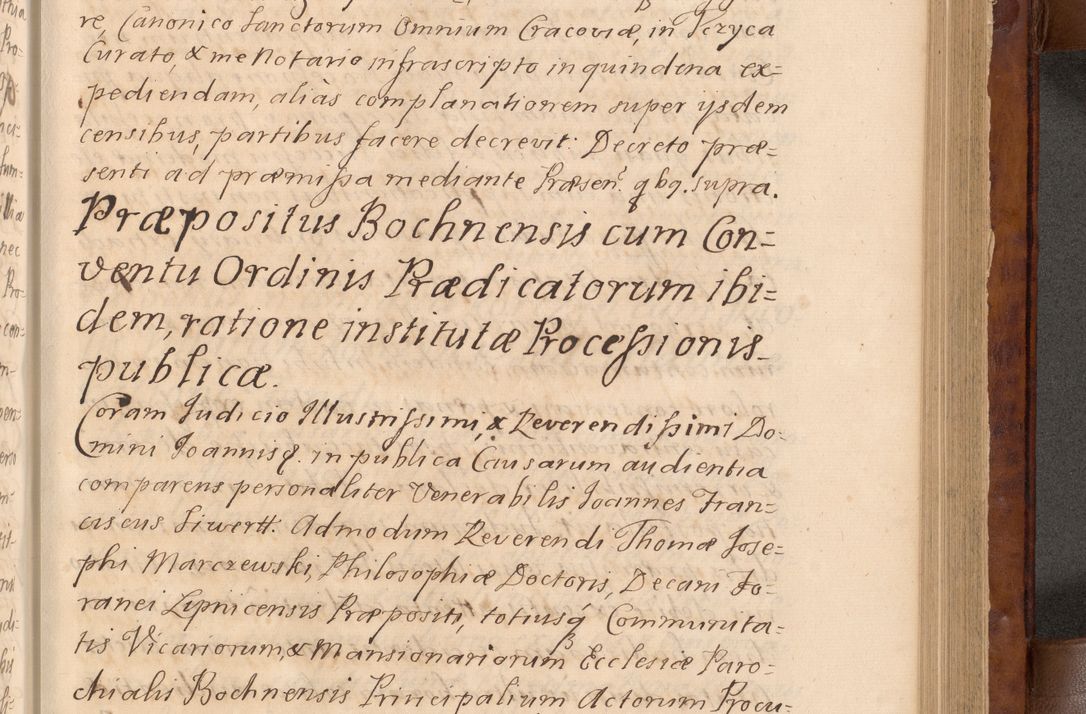 re, Canonico Sanctorum Omnium Cracoviæ, in Pczyca
Curato, & me Notario infrascripto in quindena ex=
pediendam, aliàs complanationem super ijsdem
censibus, partibus facere decrevit. Decreto præ=
senti ad præmissa mediante Præsen. qbq. supra.
Præpositus Bochnensis cum Con=
ventu Ordinis Prædicatorum ibi=
dem, ratione institutæ Processionis
publicæ.
Coram Iudicio Illustrissimi, & Reverendissimi Do=
mini Joannis &. in publica Causarum audientia
comparens personaliter Venerabilis Joannes Fran=
ciscus Siwertt. Admodum Reverendi Thomæ Jose=
phi Marczewski, Philosophiæ Doctoris, Decani Fo=
ranei Lipnicensis Præpositi, totiusq Communita=
tis Vicariorum, & Mansionariorum Ecclesiæ Paro=
chialis Bochnensis Principalium Actorum Procu=